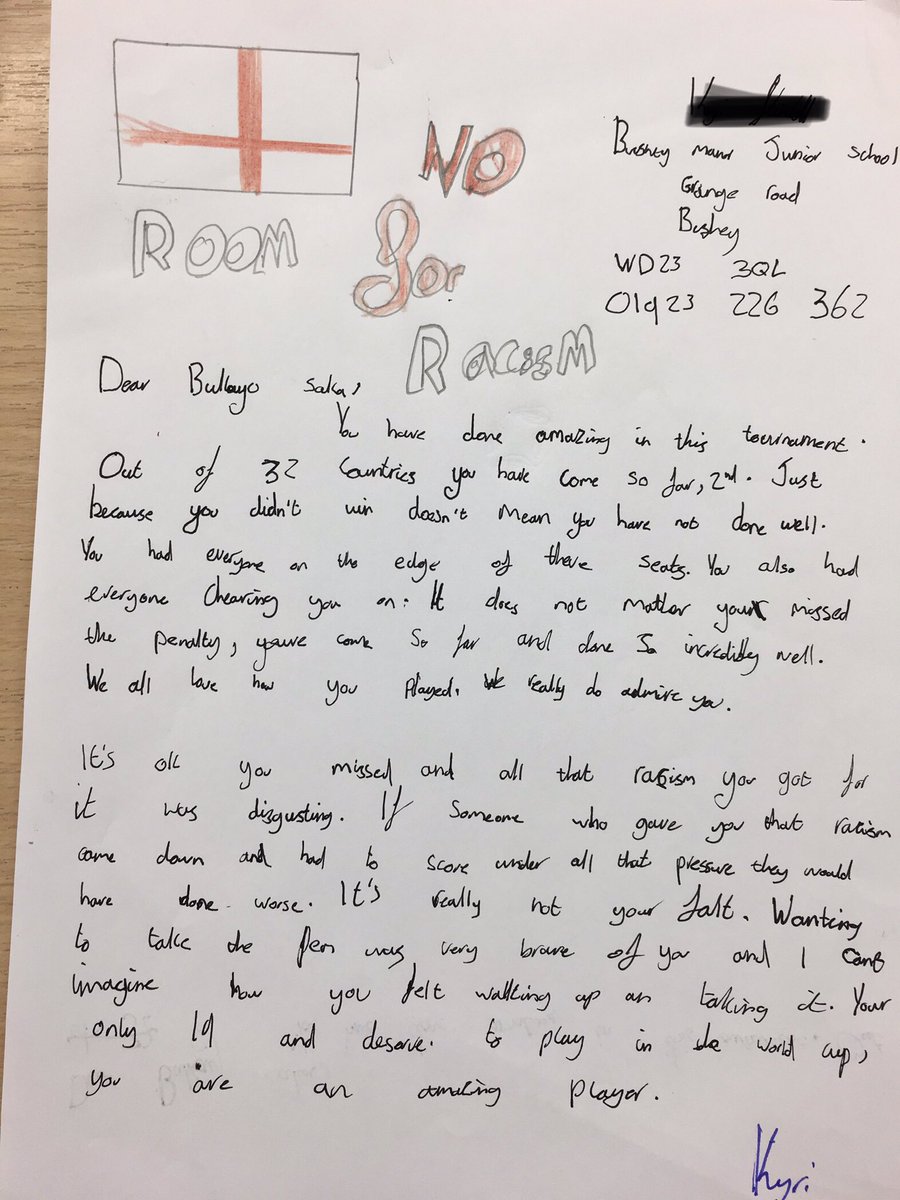 NO
ROOM for
RacisM
Bushey manor Junior school
Grange road
Bushey
WD23 3QL
01923 226 362
Dear Bukayo saka,
You have done amazing in this tournament.
Out of 32 Countries you have come so far, 2nd. Just
because you didn't win doesn't mean you have not done well.
You had everyone on the edge of there seats. You also had
everyone chearing you on. It does not matter you missed
the penalty, youve come so far and done so incredibly well.
We all love how you played. We really do admire you.
It's ok you missed and all that racism you got for
it was disgusting. If someone who gave you that racism
came down and had to score under all that pressure they would
have done worse. It's really not your falt. Wanting
to take the pen was very brave of you and I cant
imagine how you felt walking up an talking it. Your
only 19 and deserve. to play in the world cup,
you are an amazing player.
Kyri